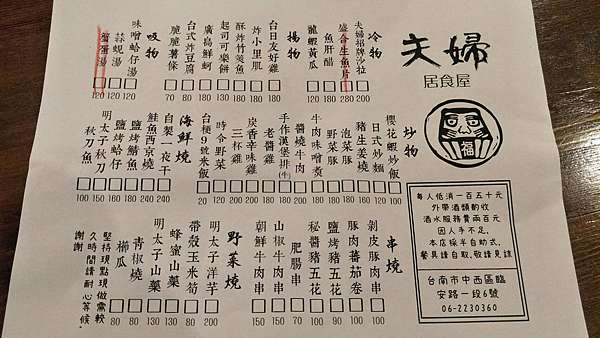 夫婦
居食屋
福
每人低消一百五十元
外帶酒類酌收
酒水服務費兩百元
因人手不足,
本店採半自助式,
餐具請自取,敬請見諒
台南市中西區臨
安路一段6號
06-2230360
冷物
夫婦招牌沙拉 200
盛合生魚片 280
魚肝醋 200
龍蝦黃瓜 180
揚物
台日友好雞 180
炸小里肌 180
酥炸竹筴魚 180
起司可樂餅 130
廣島鮮蚵 180
台式炸豆腐 80
脆脆薯條 70
吸物
味噌蛤仔湯 120
蒜蜆湯 120
蟹蛋湯 120
炒物
櫻花蝦炒飯 100
日式炒麵 120
豬生姜燒 170
泡菜豚 170
野菜豚 170
牛肉味噌煲 180
醬燒牛肉 180
手作漢堡排(牛) 180
老醬雞 180
炭香辛味雞 180
三杯雞 180
時令野菜 120
台梗9號米飯 20
海鮮燒
自製一夜干 240
鮭魚西京燒 240
鹽烤鯖魚 160
鹽烤蛤仔 160
明太子秋刀 150
秋刀魚 100
串燒
剝皮豚肉串 90
豚肉蕃茄卷 100
鹽烤豬五花 90
秘醬豬五花 100
肥腸串 70
山椒牛肉串 150
朝鮮牛肉串 150
野菜燒
明太子洋芋 200
帶殼玉米筍 80
蜂蜜山藥 130
明太子山藥 130
青椒燒 80
櫛瓜 80
堅持現點現做需較
久時間請耐心等候。
謝謝